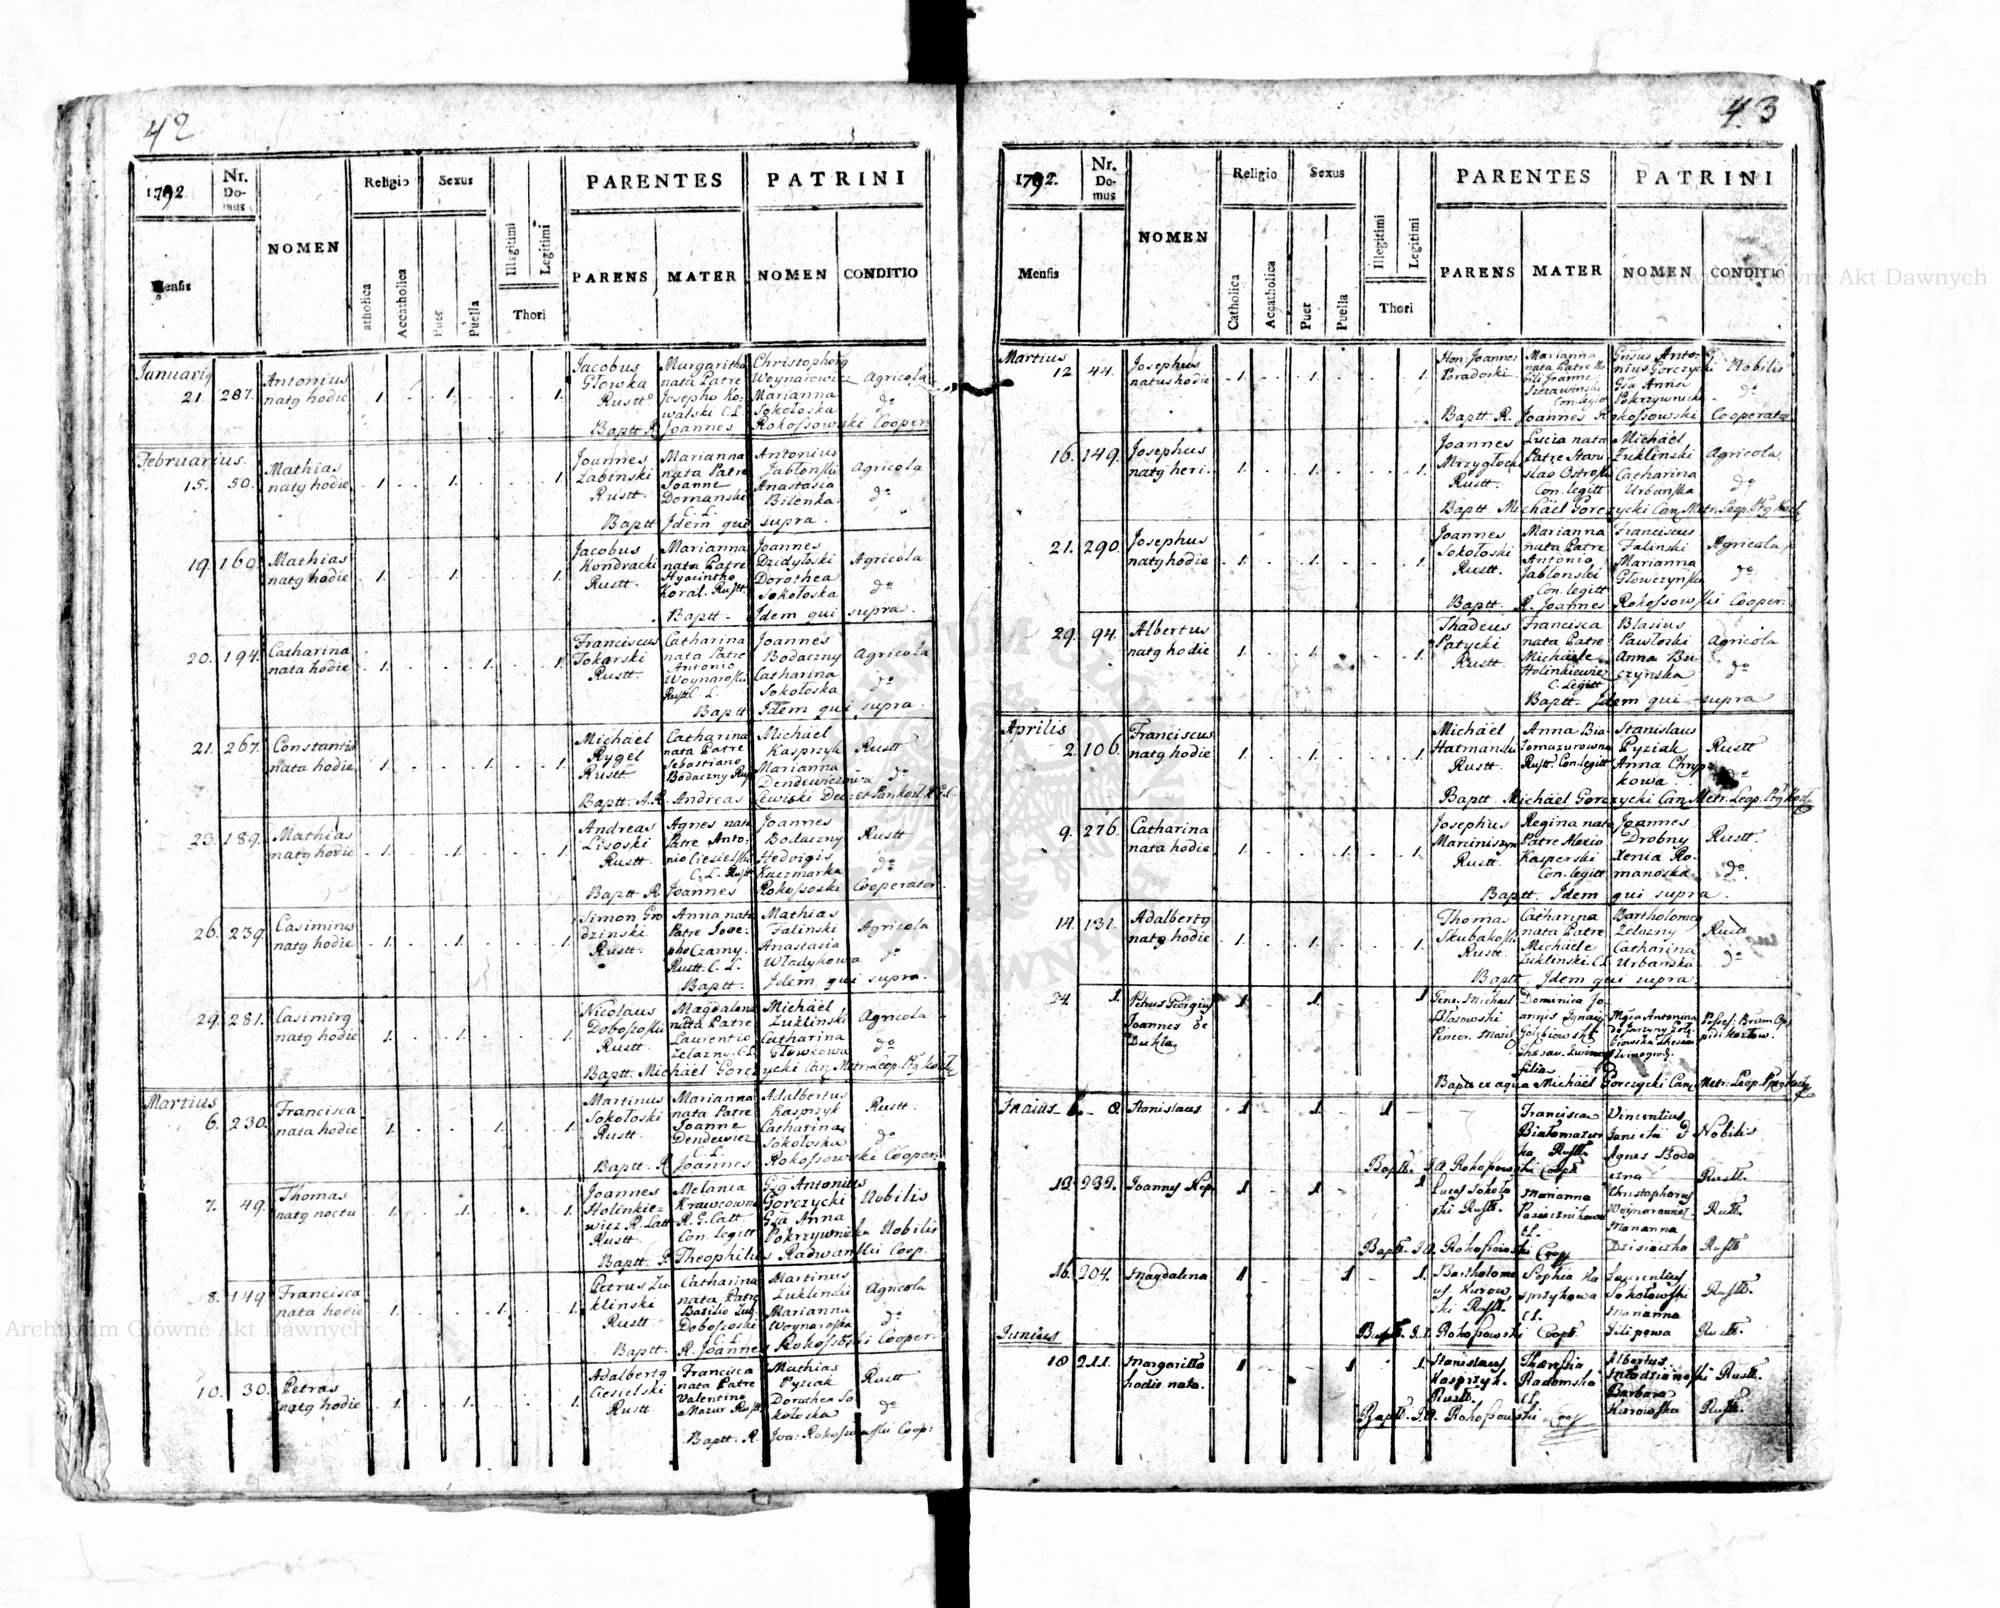 42
1792
Nr. Domus
NOMEN
Religio
Sexus
PARENTES
PATRINI
Mensis
Catholica
Accatholica
Puer
Puella
Illegitimi
Legitimi
Thori
PARENS
MATER
NOMEN
CONDITIO
Januarig
21. 287. Antonius natg hodie 1. 1. 1.
Jacobus Głowka Rustt
Margaritha nata Patre Josepho Kowalski C.L.
Christophorg Woynarowicz Marianna Sokołoska
Agricola do
Baptt R. Joannes Rokossowski Cooper.
Februarius
15. 50. Mathias natg hodie 1. 1. 1.
Joannes Łabinski Rustt.
Marianna nata Patre Joanne Domanski C.L.
Antonius Jabłonski Anastasia Bilenka
Agricola do
Baptt Idem qui supra.
19. 160. Mathias natg hodie 1. 1. 1.
Jacobus Kondracki Rustt.
Marianna nata Patre Hyacintho Koral. Rustt.
Joannes Dzidyłoski Dorothea Sokołoska
Agricola do
Baptt. Idem qui supra.
20. 194. Catharina nata hodie 1. 1. 1.
Franciscus Tokarski Rustt.
Catharina nata Patre Antonio Woynaroski Rustt C. L.
Joannes Bodaczny Catharina Sokołoska
Agricola do
Baptt Idem qui supra.
21. 267. Constantia nata hodie 1. 1. 1.
Michäel Rygel Rustt
Catharina nata Patre Sebastiano Bodaczny Rustt
Michäel Kasprzyk Marianna Dendewiczowa
Rustt do
Baptt. A.R. Andreas Lewicki
23. 189. Mathias natg hodie 1. 1. 1.
Andreas Lisoski Rustt.
Agnes nata Patre Antonio Ciesielski C. L. Rustt
Joannes Bodaczny Hedvigis Kaczmarka
Rustt do
Baptt R. Joannes Rokossoski Cooperator.
26. 239. Casimirus natg hodie 1. 1. 1.
Simon Grodzinski Rustt.
Anna nata Patre Josepho Czarny. Rustt. C. L.
Mathias Zalinski Anastasia Władykowa
Agricola do
Baptt. Idem qui supra.
29. 281. Casimirg natg hodie 1. 1. 1.
Nicolaus Dobososki Rustt.
Magdalena nata Patre Laurentio Zelazny. C.L.
Michäel Zuklinski Catharina Głowkowa
Agricola do
Baptt. Michäel Gorczycki Can. Metr. Leop.
Martius
6. 230. Francisca nata hodie 1. 1. 1.
Martinus Sokołoski Rustt.
Marianna nata Patre Joanne Dendewicz C.L.
Adalbertus Kasprzyk Catharina Sokołoska
Rustt. do
Baptt. R Joannes Rokossowski Cooper.
7. 49. Thomas natg noctu 1. 1. 1.
Joannes Holinkiewicz R. Latt Rustt.
Melania Krawcowna R. G. Catt. Con. Legitt
Gsg Antonius Gorczycki Gsa Anna Pokrzywnicka
Nobilis Nobilis
Baptt. P. Theophilus Radwanski Coop.
8. 149 Francisca nata hodie 1. 1. 1.
Petrus Zuklinski Rustt.
Catharina nata Patre Basilio Dobososki C.L.
Martinus Zuklinski Marianna Woynaroska
Agricola do
Baptt. R. Joannes Rokossoski Cooper.
10. 30. Petrus natg hodie 1. 1. 1.
Adalbertg Ciesielski Rustt
Francisca nata Patre Valentino Mazur Rustt
Mathias Pyziak Dorothea Sokołoska
Rustt do
Baptt. R. Joa: Rokossowski Coop:
43
1792.
Nr. Domus
NOMEN
Religio
Sexus
PARENTES
PATRINI
Mensis
Catholica
Accatholica
Puer
Puella
Illegitimi
Legitimi
Thori
PARENS
MATER
NOMEN
CONDITIO
Martius
12. 44. Josephus natus hodie 1. 1. 1.
Joannes Poradoski.
Marianna nata Patre Joanne Con. legitt
Antonius Gorczycki Gsa Anna Pokrzywnicka
Nobilis do
Baptt. R. Joannes Rokossowski Cooperator
16. 149. Josephus natg heri. 1. 1. 1.
Joannes Mrzygłocki Rustt.
Lucia nata Patre Stanislao Ostroski Con. legitt
Michäel Zuklinski Catharina Urbanska
Agricola. do
Baptt. Michäel Gorczycki Can. Metr. Leop.
21. 290. Josephus natg hodie 1. 1. 1.
Joannes Sokołoski Rustt.
Marianna nata Patre Antonio Jabłonski Con. legitt
Franciscus Zalinski Marianna Głowczynska
Agricola, do
Baptt. R. Joannes Rokossowski Cooper.
29. 94. Albertus natg hodie 1. 1. 1.
Thadeus Patycki Rustt.
Francisca nata Patre Michäele Holinkiewicz C. Legitt
Blasius Pawłoski Anna Buczynska
Agricola do
Baptt. Idem qui supra
Aprilis
2. 106. Franciscus natg hodie 1. 1. 1.
Michäel Hatmanski Rustt.
Anna Białomazurowna Rustt. Con. legitt
Stanislaus Pyziak Anna Chrypkowa.
Rustt do
Baptt. Michäel Gorczycki Can. Metr. Leop.
9. 276. Catharina nata hodie 1. 1. 1.
Josephus Marciniszyn Rustt.
Regina nata Patre Alexio Kasperski Con. legitt
Joannes Drobny Xenia Romanoska
Rustt. do.
Baptt. Idem qui supra.
14. 131. Adalbertg natg hodie 1. 1. 1.
Thomas Skubakoski Rustt.
Catharina nata Patre Michäele Zuklinski C.L.
Bartholomeg Zelazny Catharina Urbanska
Rustt do
Baptt. Idem qui supra.
24. 1. Petrus Georgius Joannes de Dukla. 1. 1. 1
Gene. Michael Błazowski
Dominica Joannis Ignacy Gołębiowski filia
Antonina
Baptt ex aqua Michäel Gorczycki Can. Metr. Leop.
Maius 8. Stanislaus 1 1 1
Francisca Białomazurka Rustt.
Vincentius Agnes Bodaczna
Nobilis Rustt.
Baptt. J.R. Rokossowski Coop.
13. 232. Joannes Nep. 1 1 1
Lucas Sokołoski Rustt.
Marianna Pasiecznikowa CL.
Christophorus Woynarowicz Marianna Dzisiaczka
Rustt. Rustt
Baptt. J.R. Rokossowski Coop
16. 204. Magdalina 1 1 1.
Bartholomeus Kurowski Rustt.
Sophia Kasprzykowa CL.
Laurentius Sokołowski Marianna Filipowa
Rustt. Rustt.
Baptt. J.R. Rokossowski Coopt.
Junius
18 211. Margaritta hodie nata. 1 1 1.
Stanislaus Kasprzyk. Rustt.
Theresia Radomska CL.
Albertus Młodzianoski Barbara Kurowska
Rustt. Rustt.
Baptt. J.R. Rokossowski Coop
Archiwum Główne Akt Dawnych
Archiwum Główne Akt Dawnych
ARCHIWUM GŁÓWNE AKT DAWNYCH